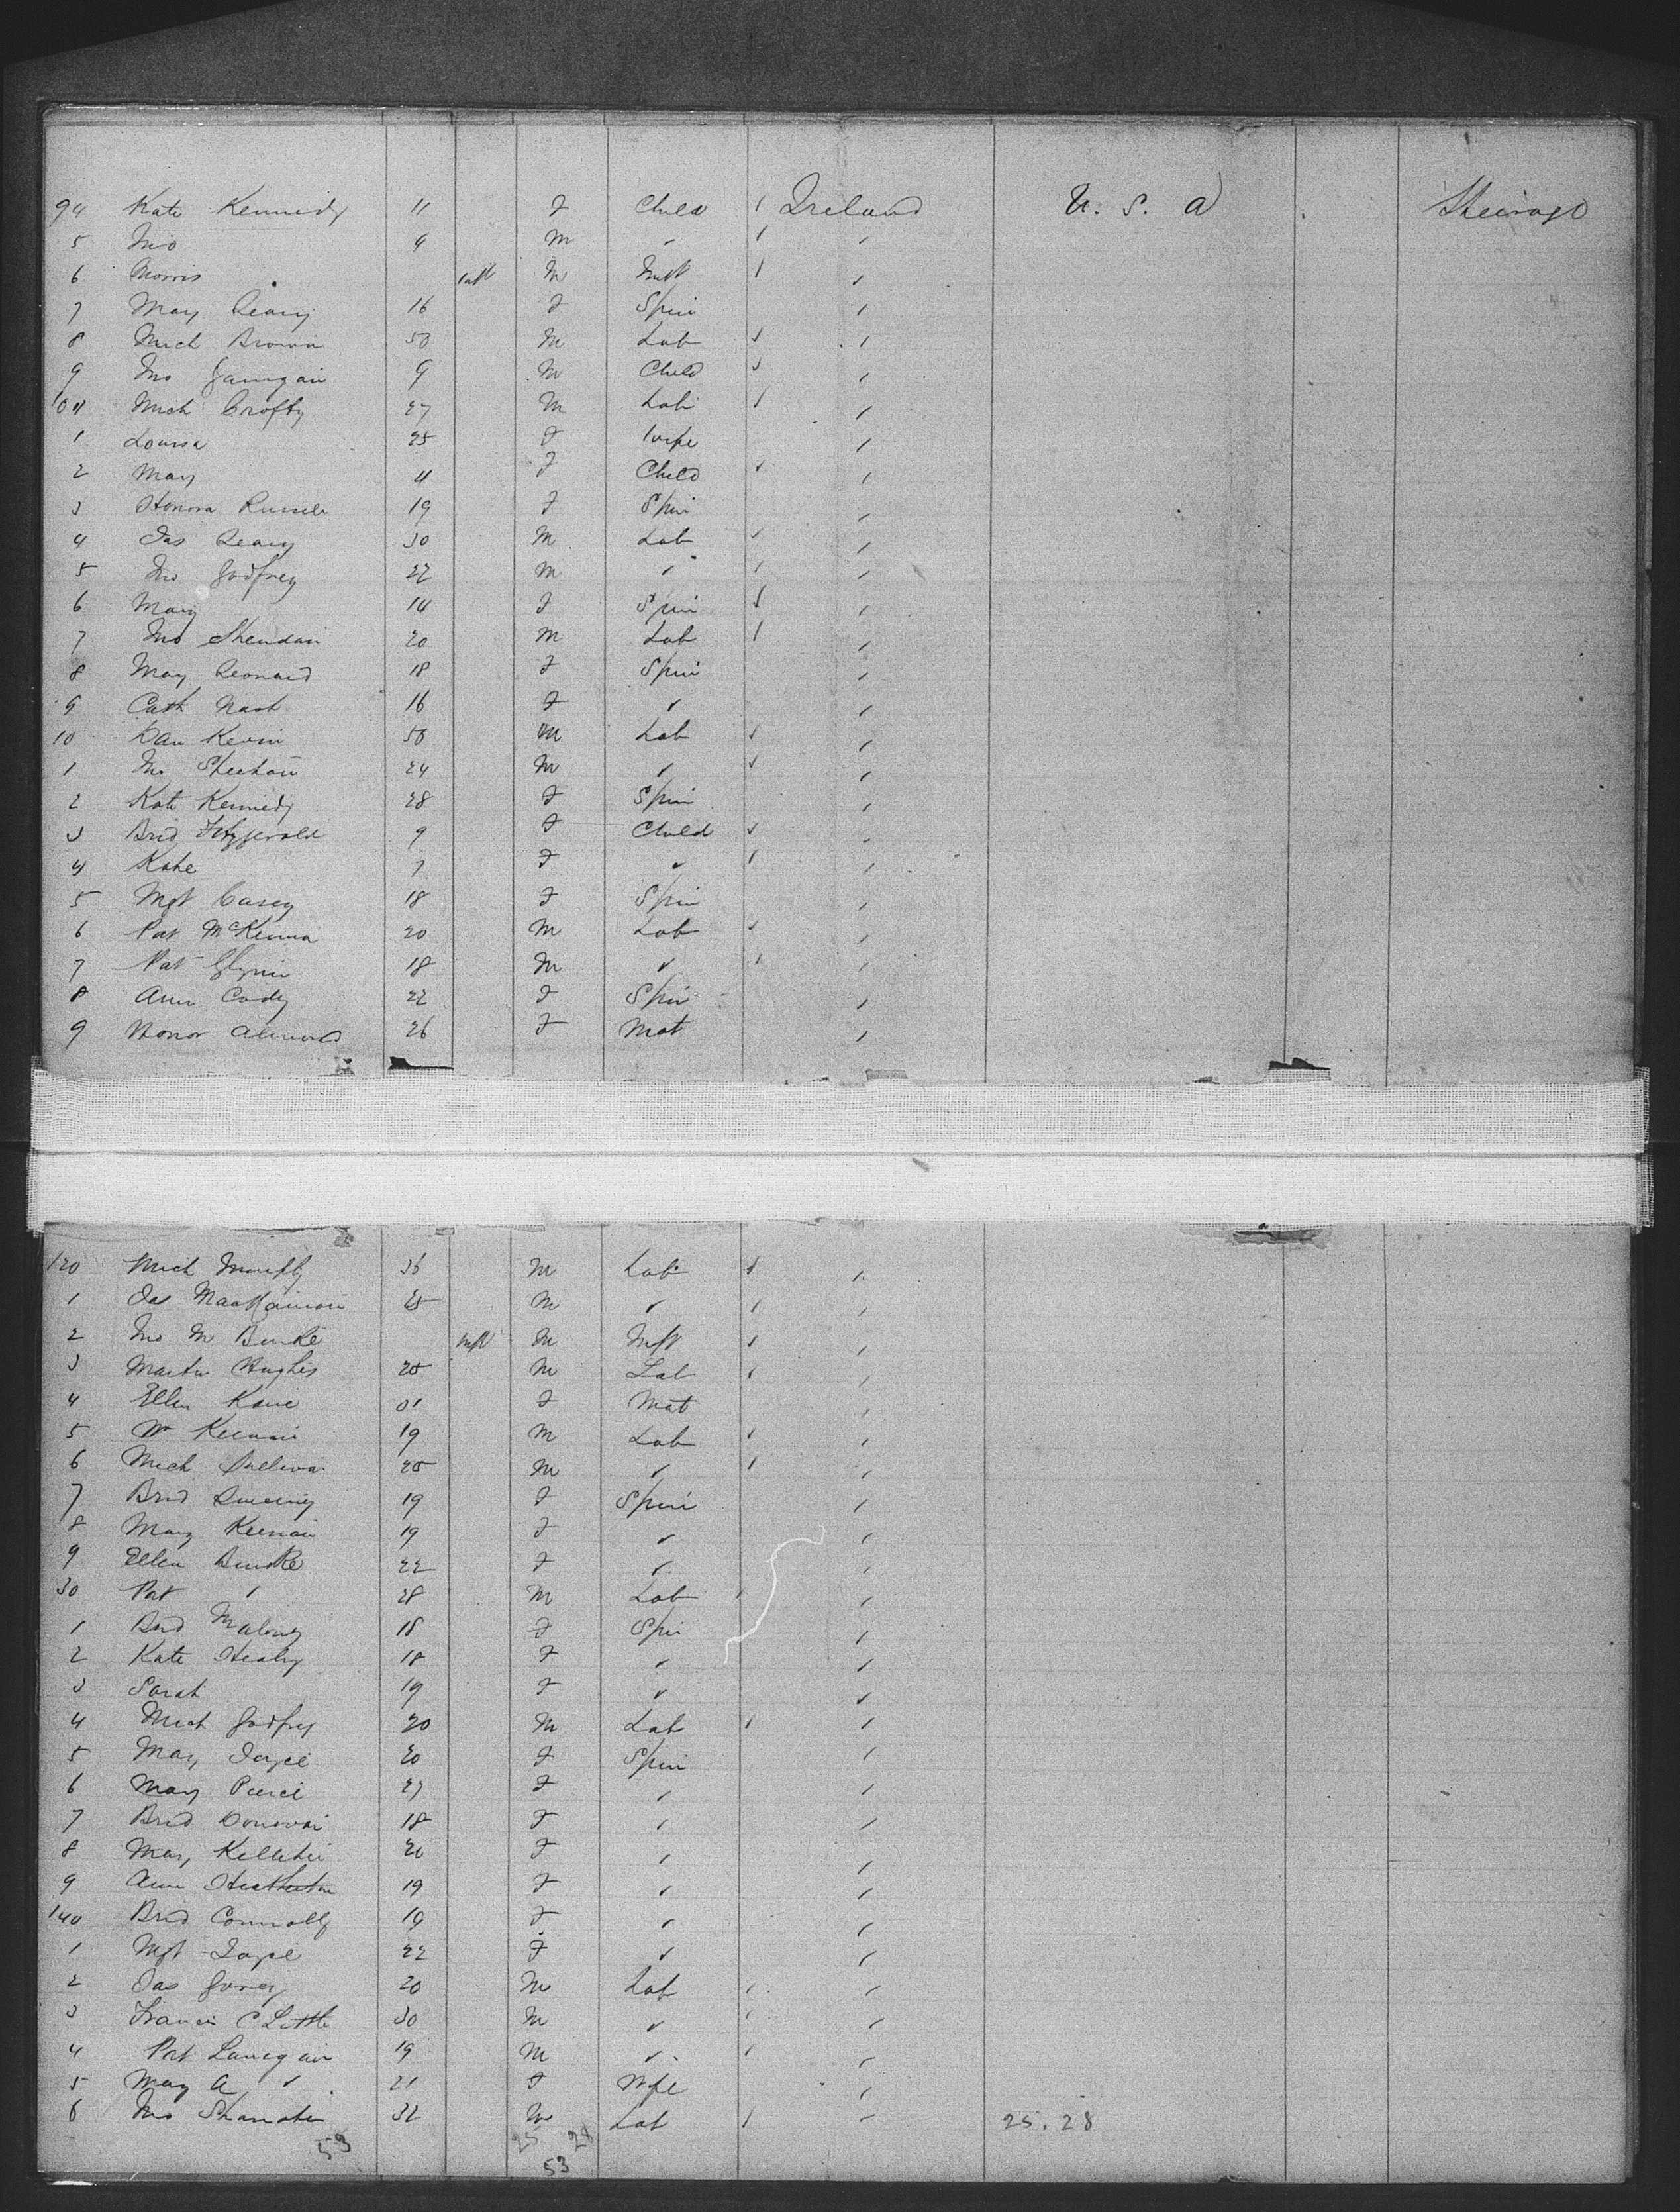 94 Kate Kennedy 11 F Child / Ireland U. S. A Steerage
5 Jno 9 M " / "
6 Morris Inft M Inft / "
7 Mary Leary 16 F Spin "
8 Mich Brown 50 M Lab / "
9 Jno 9 M Child / "
100 Mich Crofty 27 M Lab / "
1 Louisa 25 F Wife "
2 Mary 4 F Child / "
3 Honora Russell 19 F Spin "
4 Jas Leary 30 M Lab / "
5 Jno Godfrey 22 M " / "
6 Mary 14 F Spin / "
7 Jno Sheridan 20 M Lab / "
8 Mary Leonard 18 F Spin "
9 Cath Nash 16 F " "
10 Dan Kevin 50 M Lab / "
1 Jno Sheehan 24 M " / "
2 Kate Kennedy 28 F Spin "
3 Brid Fitzgerald 9 F Child / "
4 Kate 7 F " / "
5 Mgt Casey 18 F Spin "
6 Pat McKenna 20 M Lab / "
7 Pat Glynn 18 M " / "
8 Ann Cody 22 F Spin "
9 Honor 26 F Mat "
120 Mich Murphy 36 M Lab / "
1 Jas 25 M " / "
2 Jno M Burke Inft M Inft / "
3 Martin Hughes 20 M Lab / "
4 Ellen Kane F Mat "
5 Wm Keenan 19 M Lab / "
6 Mich Sullivan 20 M " / "
7 Brid Sweeney 19 F Spin "
8 Mary Keenan 19 F " "
9 Ellen Burke 22 F " "
30 Pat " 28 M Lab / "
1 Brid Maloney 18 F Spin "
2 Kate Healy 18 F " "
3 Sarah 19 F " "
4 Mich Godfrey 20 M Lab / "
5 Mary Joyce 20 F Spin "
6 Mary Pierce 27 F " "
7 Brid Donovan 18 F " "
8 Mary Kelleher 20 F " "
9 Ann 19 F " "
140 Brid Connolly 19 F " "
1 Mgt Joyce 22 F " "
2 Jas 20 M Lab / "
3 Francis C Little 30 M " / "
4 Pat Lanegan 19 M " / "
5 Mary A " 21 F Wife "
6 Jno 32 M Lab / " 25.28
53 25 28
53